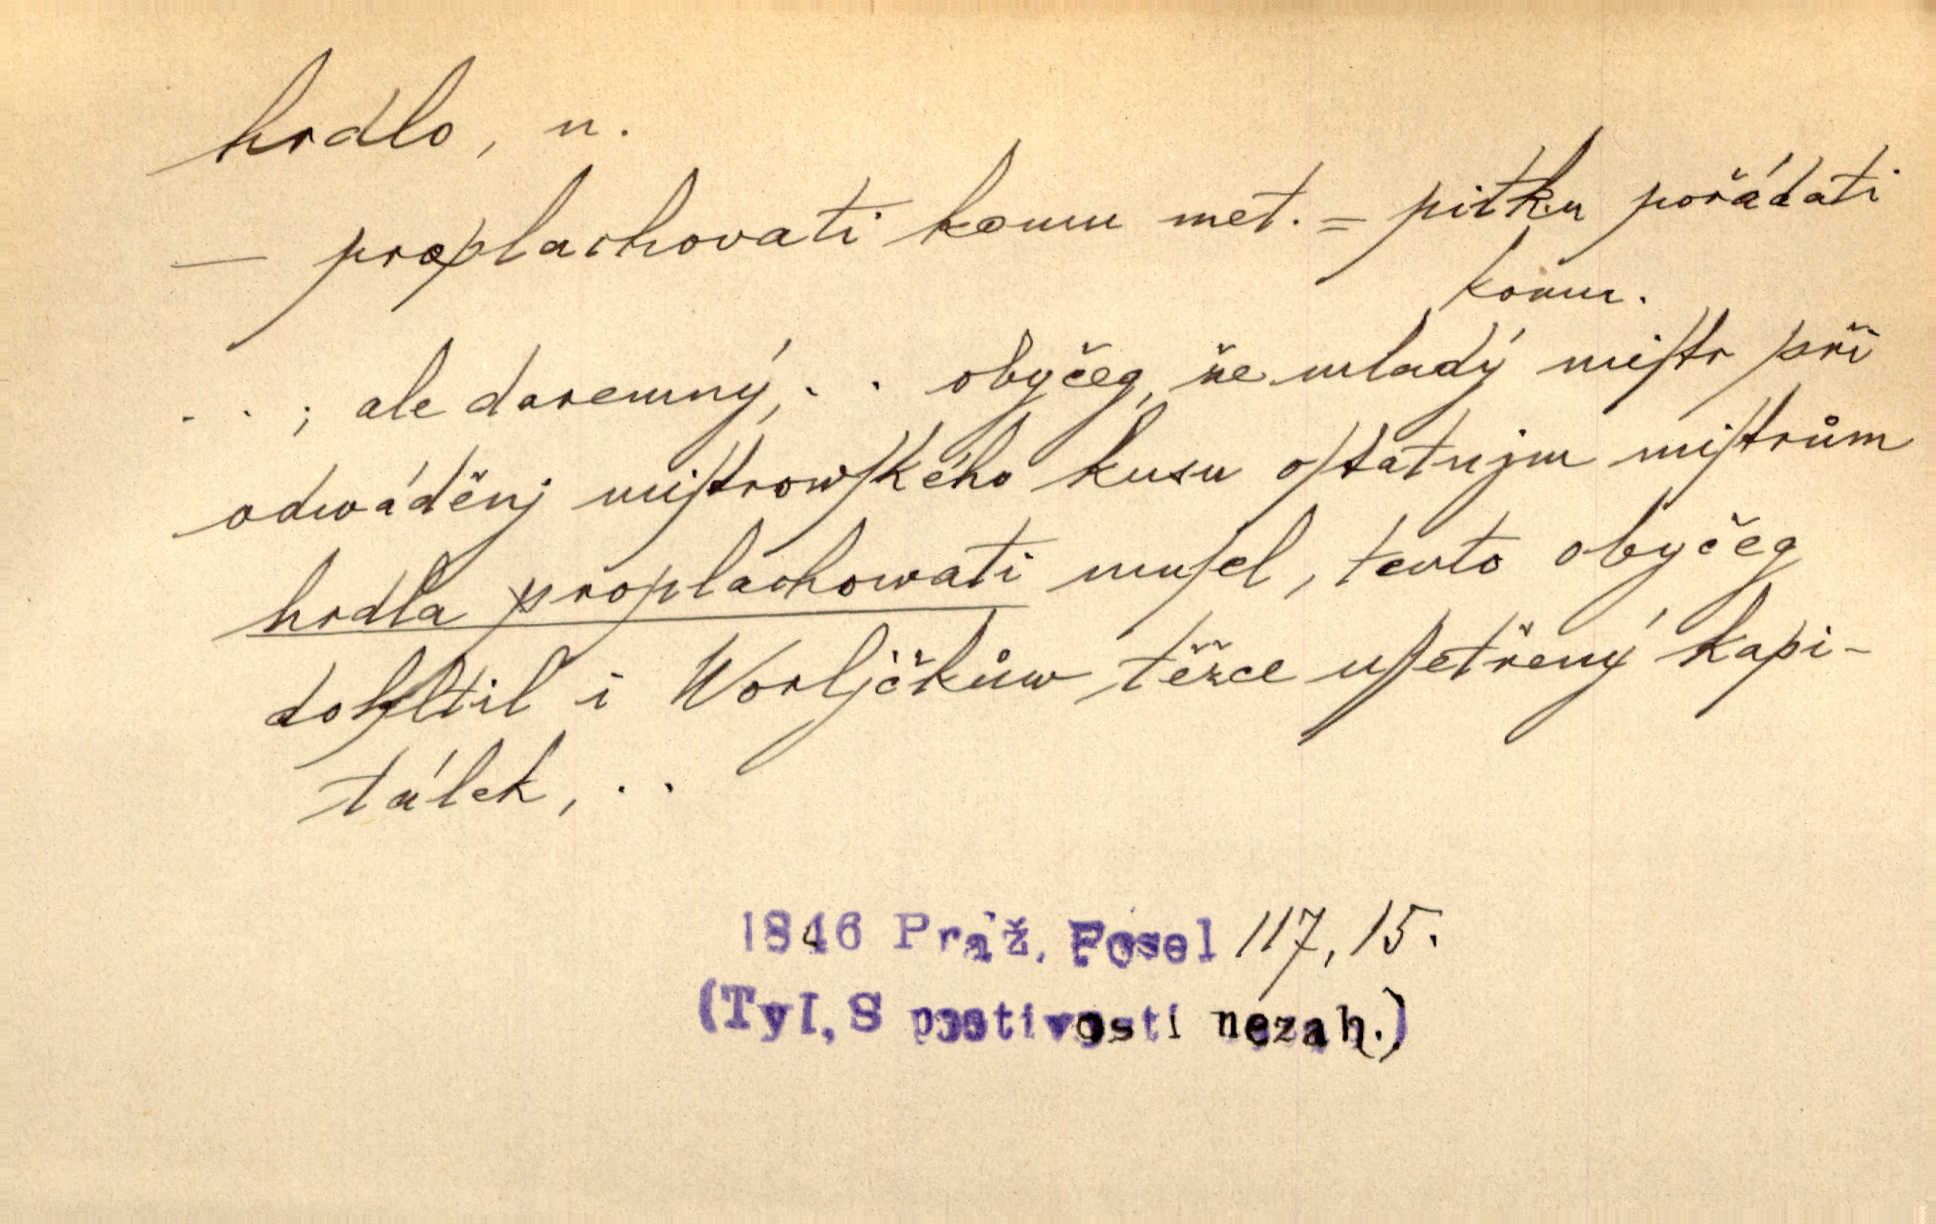 hrdlo, n.
— proplachovati komu met. = pitku pořádati
komu.
. . ; ale daremný, . . obyčeg, že mladý miſtr při
odwáděnj miſtrowſkého kusu oſtatnjm miſtrům
hrdla proplachowati muſel, tento obyčeg
dohltil i Worljčkůw těžce uſſetřený kapi-
tálek, . .
1846 Praž. Posel 117, 15.
(Tyl, S poctivostí nezah.)